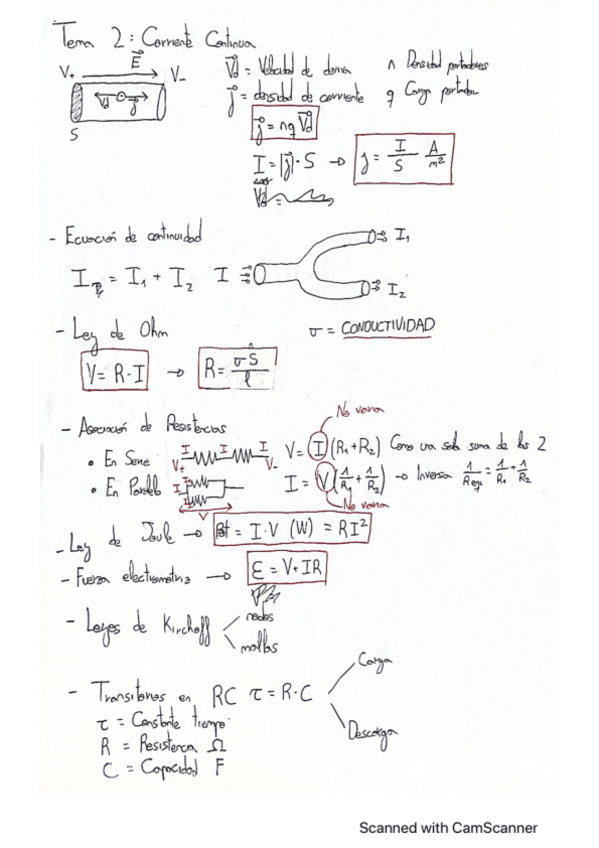 Tema 2: Corriente Continua
V+ E V-
Vd j
S
Vd = Velocidad de deriva n Densidad portadores
j = densidad de corriente q Carga portador
j = nq Vd
I = |j|·S → j = I/S A/m²
- Ecuación de continuidad
I = I1 + I2 I I1
I2
- Ley de Ohm σ = CONDUCTIVIDAD
V = R·I → R = σS/l
- Asociación de Resistencias No varia
• En Serie I I I V+ V- V = I (R1+R2) Como una sola suma de las 2
• En Paralelo I I V I = V(1/R1 + 1/R2) → Inversa 1/Req = 1/R1 + 1/R2
No varia
- Ley de Joule → = I·V (W) = RI²
- Fuerza electromotriz → ε = V+IR
- Leyes de Kirchoff nodos
mallas
- Transitorios en RC τ = R·C Carga
Descarga
τ = Constante tiempo
R = Resistencia Ω
C = Capacidad F
Scanned with CamScanner